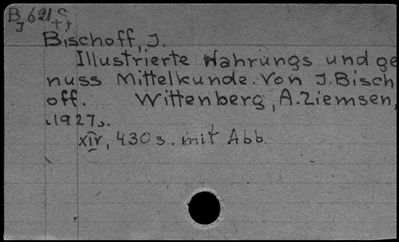 B 621 S
J + r
Bischoff, J.
Illustrierte Nahrungs und ge
nuss Mittelkunde. Von J. Bisch
off. Wittenberg, A. Ziemsen,
1927.
XIV, 430 s. mit Abb.